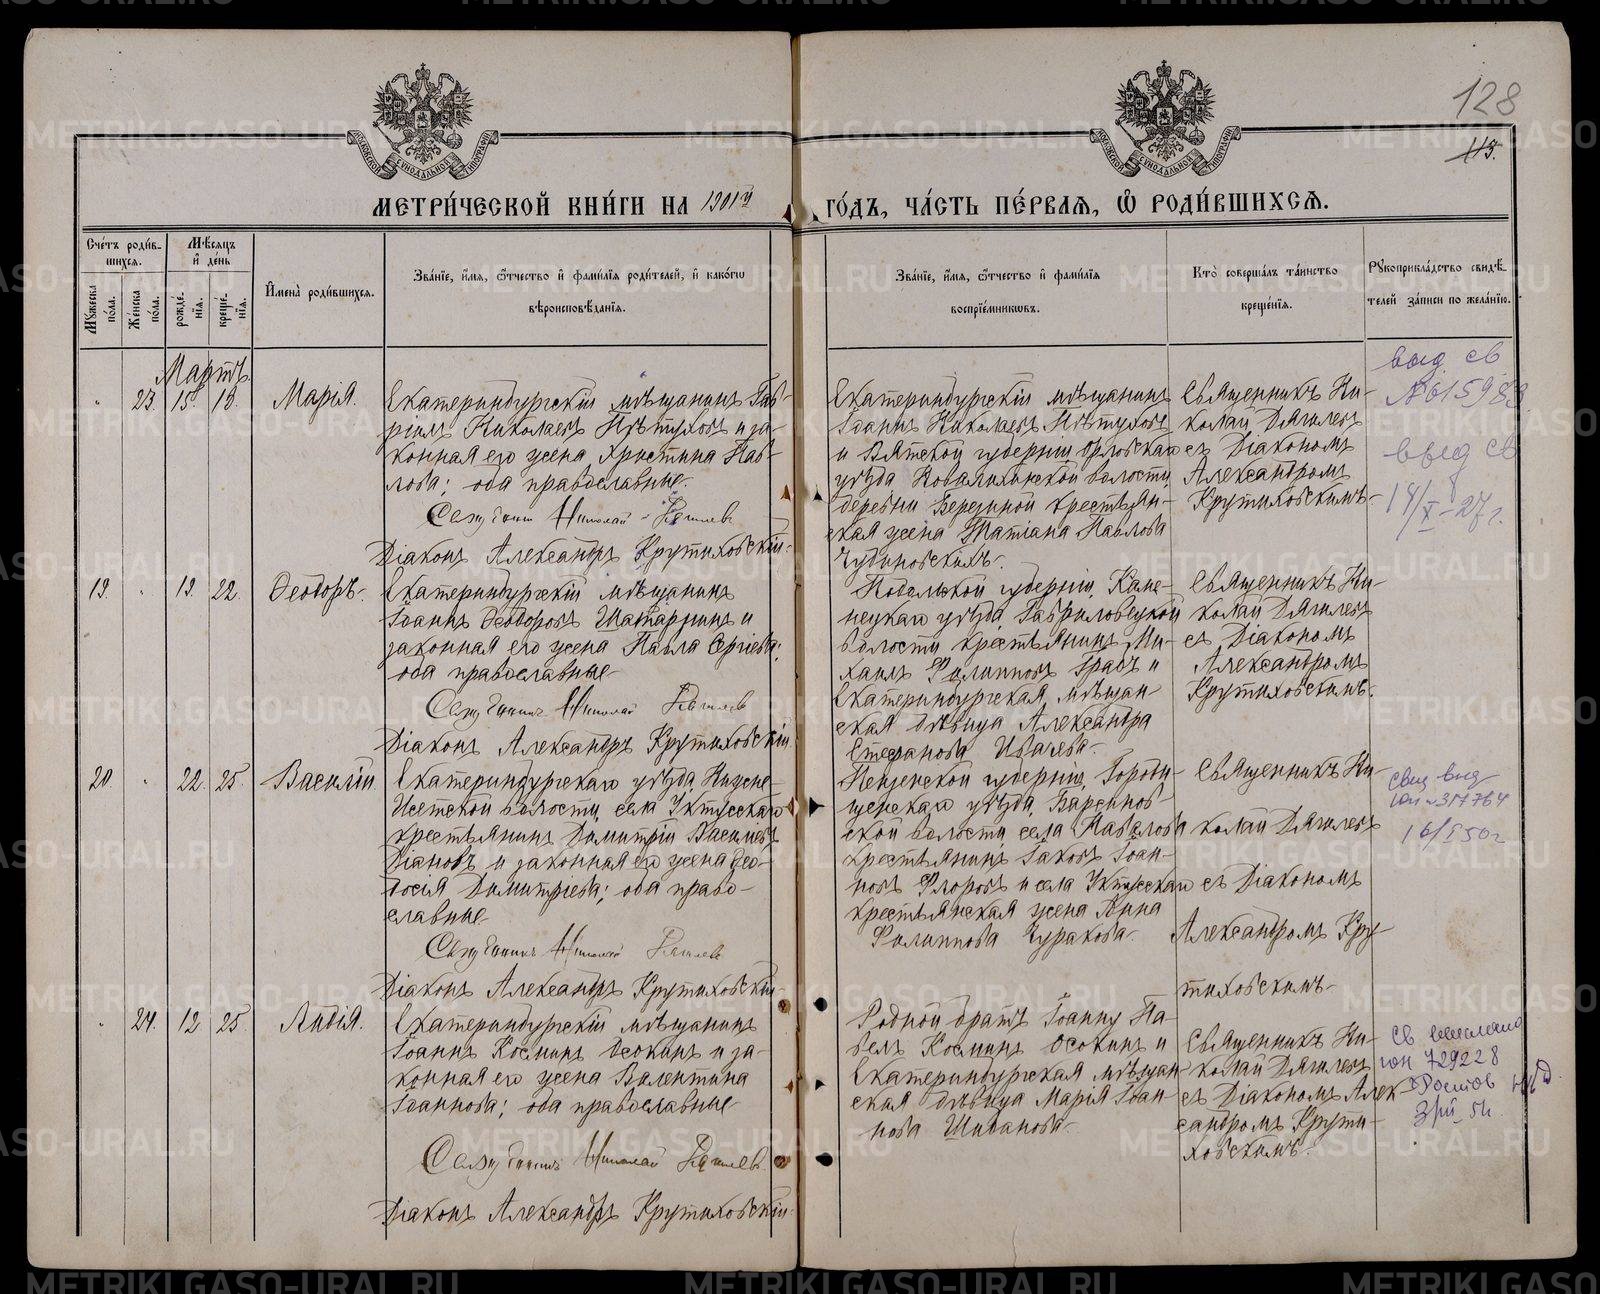 128
115.
МЕТРИ́ЧЕСКОЙ КНИ́ГИ НА 1901й ГО́ДЪ, ЧА́СТЬ ПЕ́РВАЯ, Ѽ РОДИ́ВШИХСЯ.
Сче́тъ роди́вшихся.
Му́жеска по́ла.
Же́нска по́ла.
Мѣ́сяцъ и҆ де́нь
рожде́нія.
креще́нія.
И҆мена̀ роди́вшихся.
Зва́ніе, и҆́мя, ѻ҆́тчество и҆ фами́лія роди́телей, и҆ како́гѡ
вѣроисповѣ́данія.
Зва́ніе, и҆́мя, ѻ҆́тчество и҆ фами́лія
воспріе́мниковъ.
Кто̀ соверша́лъ та́инство
креще́нія.
Рꙋкоприкла́дство свидѣ́телей за́писи по жела́нію.
Мартъ.
23. 15. 18. Марія.
Екатеринбургскій мѣщанинъ Гав-
ріилъ Николаевъ Пѣтуховъ и за-
конная его жена Христина Пав-
лова; оба православные.
Священникъ Николай Дягилевъ
Діаконъ Александръ Крутиховскій.
Екатеринбургскій мѣщанинъ
Іоаннъ Николаевъ Пѣтуховъ
и Вятской губерніи Орловскаго
уѣзда Ковалихинской волости
деревни Берединой крестьян-
ская жена Татіана Павлова
Чудиновскихъ.
Священникъ Ни-
колай Дягилевъ
съ Діакономъ
Александромъ
Крутиховскимъ.
выд св
№615983
выд св
14/X-27г.
19. 19. 22. Ѳеодоръ.
Екатеринбургскій мѣщанинъ
Іоаннъ Ѳеодоровъ Шатаринъ и
законная его жена Павла Сергіева;
оба православные
Священникъ Николай Дягилевъ
Діаконъ Александръ Крутиховскій
Подольской губерніи, Каме-
нецкаго уѣзда, Гавриловецкой
волости крестьянинъ Ми-
хаилъ Филипповъ Грабъ и
Екатеринбургская мѣщан-
ская дѣвица Александра
Стефанова Ивачева.
Священникъ Ни-
колай Дягилевъ
съ Діакономъ
Александромъ
Крутиховскимъ.
20. 22. 25. Василій
Екатеринбургскаго уѣзда, Нижне-
Исетской волости, села Уктусскаго
крестьянинъ Димитрій Васильевъ
и законная его жена Ѳео-
досія Димитріева; оба право-
славные
Священникъ Николай Дягилевъ
Діаконъ Александръ Крутиховскій
Пензенской губерніи, Городи-
щенскаго уѣзда,
ской волости, села
крестьянинъ Іаковъ Іоан-
новъ Флоровъ и села Уктусскаго
крестьянская жена Анна
Филиппова Чуракова.
Священникъ Ни-
колай Дягилевъ
съ Діакономъ
Александромъ Кру-
тиховскимъ.
свид выд
317764
16/I 50г
24. 12 25. Лидія.
Екатеринбургскій мѣщанинъ
Іоаннъ Косминъ Осокинъ и за-
конная его жена Валентина
Іоаннова; оба православные
Священникъ Николай Дягилевъ.
Діаконъ Александръ Крутиховскій.
Родной братъ Іоанну Па-
велъ Косминъ Осокинъ и
Екатеринбургская мѣщан-
ская дѣвица Марія Іоан-
нова Шиванова.
Священникъ Ни-
колай Дягилевъ
съ Діакономъ Алек-
сандромъ Крути-
ховскимъ.
св выслано
729228
Ростов н/Д
METRIKI.GASO-URAL.RU